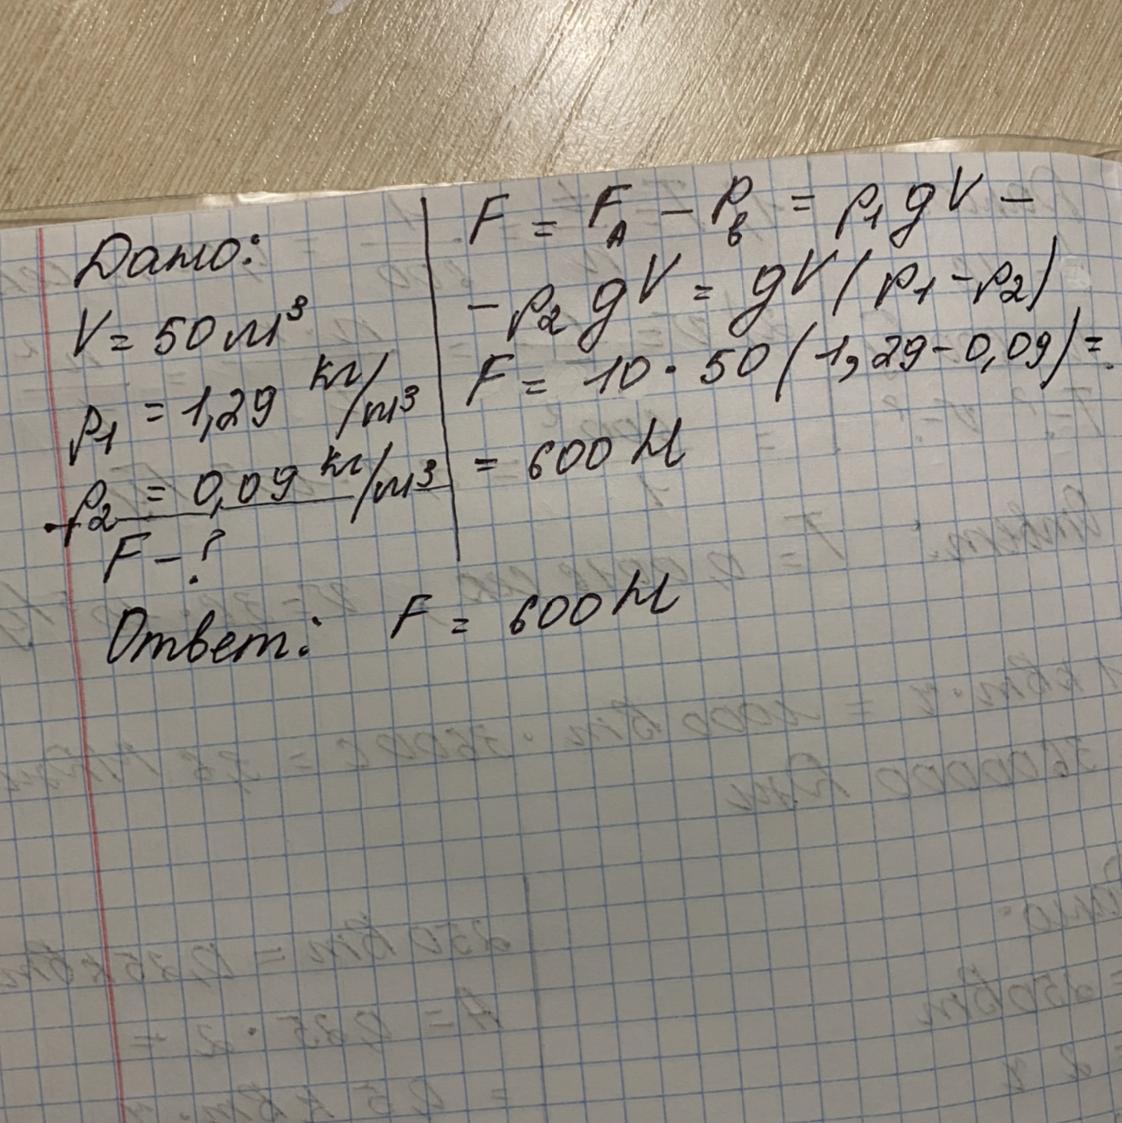 Дано:
V = 50 м³
ρ₁ = 1,29 кг/м³
ρ₂ = 0,09 кг/м³
F - ?
F = F_A - P_в = ρ₁gV -
- ρ₂gV = gV(ρ₁-ρ₂)
F = 10 · 50(1,29-0,09) =
= 600 Н
Ответ: F = 600 Н